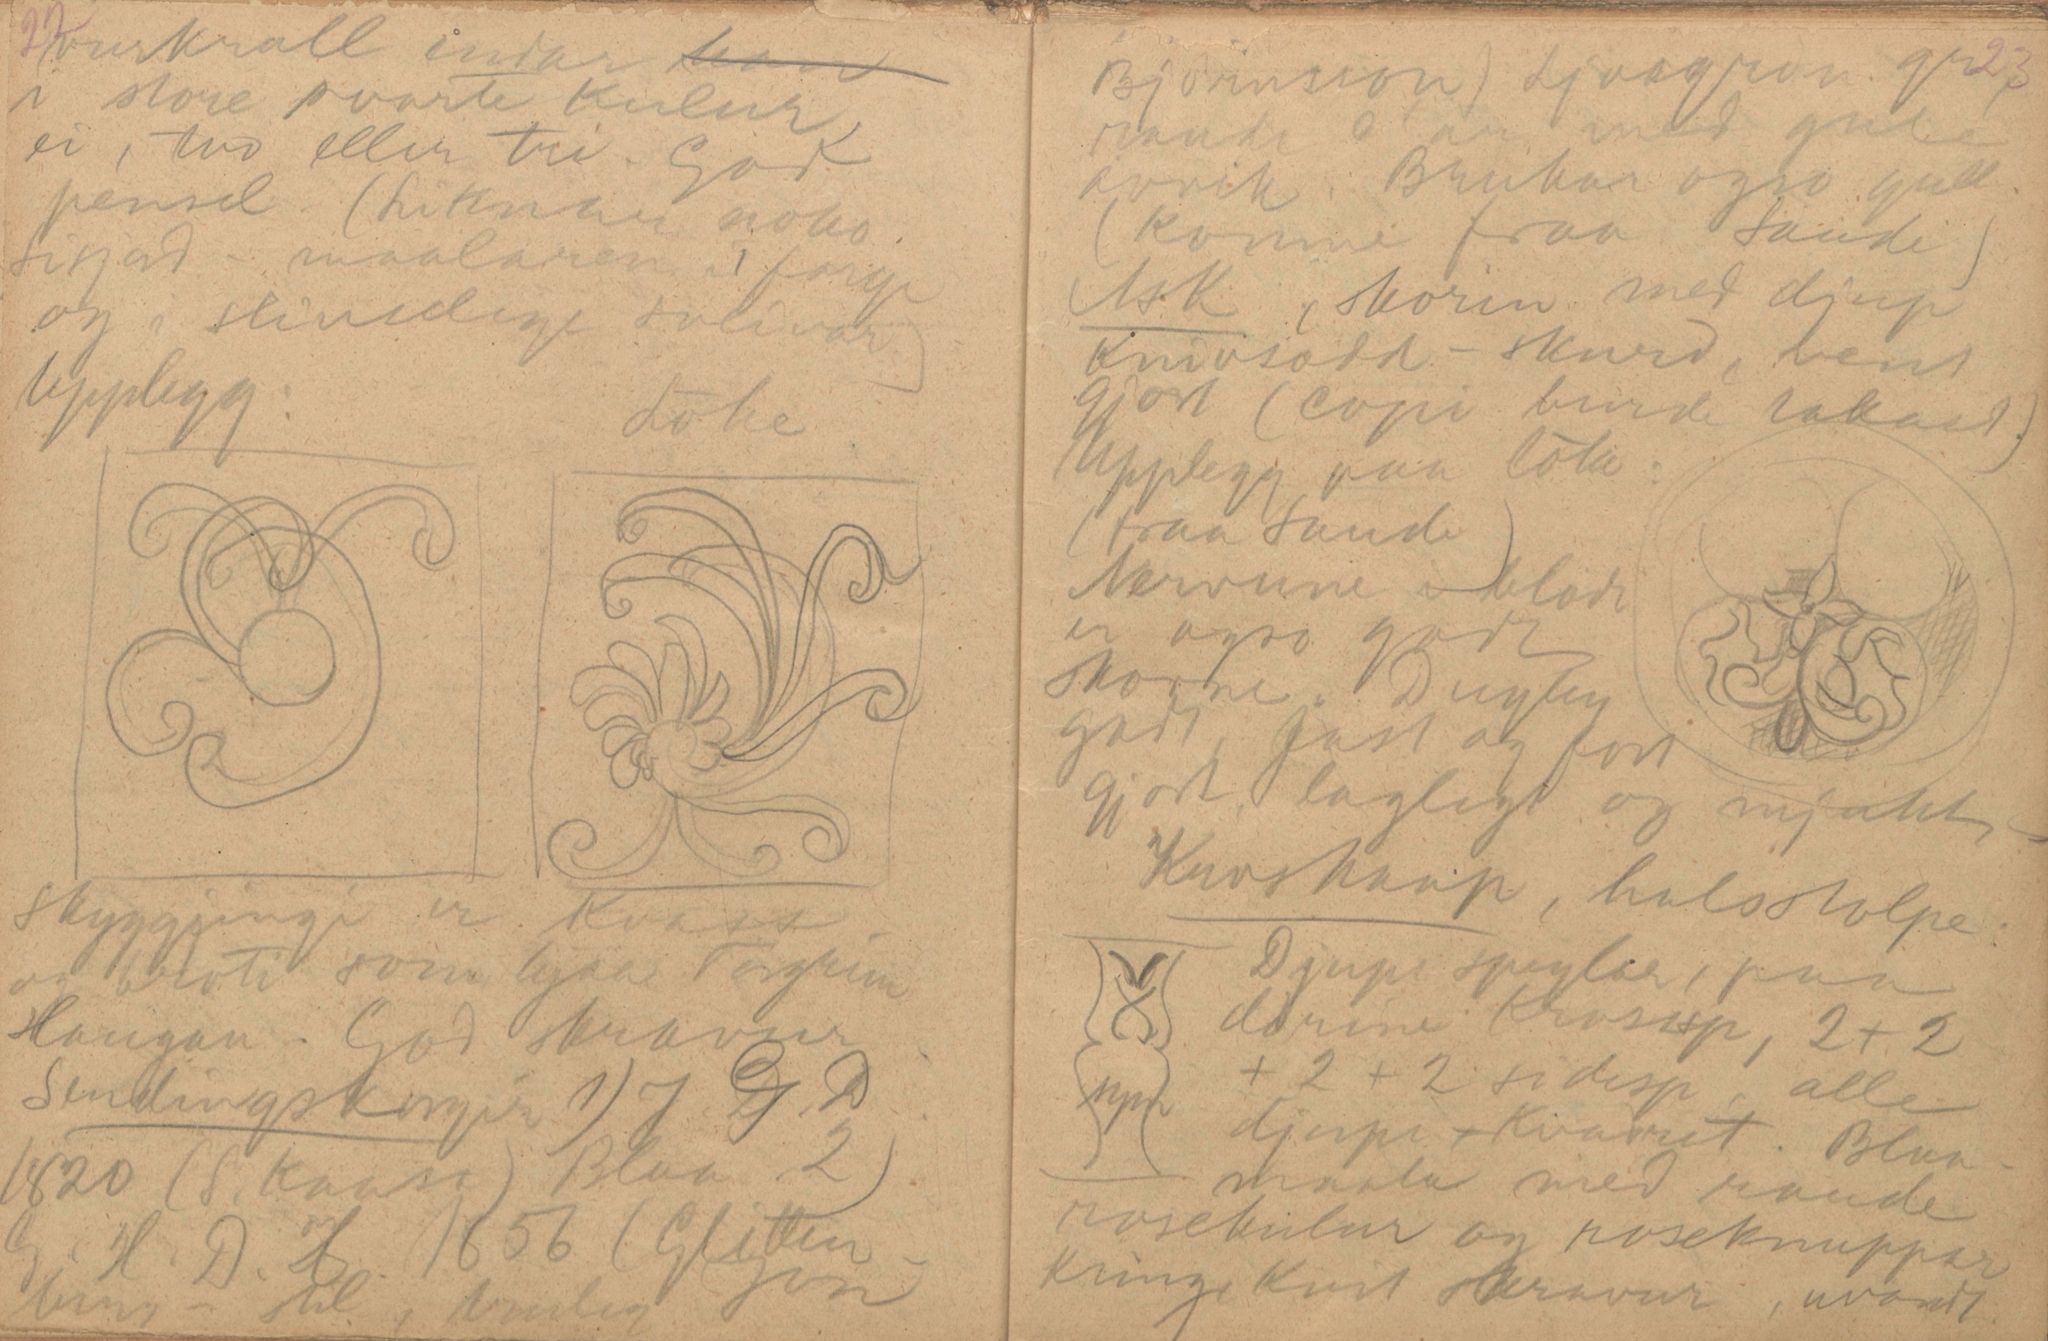 22
endar
i store svarte Kulur,
ei, two eller tri. God
pensel (Liknar noko
maalaren i farge
og i
Upplegg:
Löke
Skyggjingi er Kvass
og som Torgrim
Haugan. God skravur.
Sendingskorgir 1) J G. D
1820 (S. Kaasa) Blaa 2)
G. H. D. H. 1856 (
stil, truleg Jon
23
Björnsson) Ljosgrøn
raude med gule
Brukar ogso gull.
(Komme fraa Saude)
Ask, skorin med djup
Knivsodd-skurd, beint
gjort (Copi burde takast)
Upplegg paa löke:
(fraa Saude)
Nervune i blade
er ogso godt
skorne. Dugleg
godt, fast og fort
gjort, laglegt og mjukt,
Kuvskaap, halsstolpe.
Djupe speglar, paa
dørine Krossp, 2 + 2
+ 2 + 2 sidesp, alle
djupe + Kvarvet. Blaa-
maala med raude
rosekulur og roseknuppar
Kring. Kvit skravur, uvandt